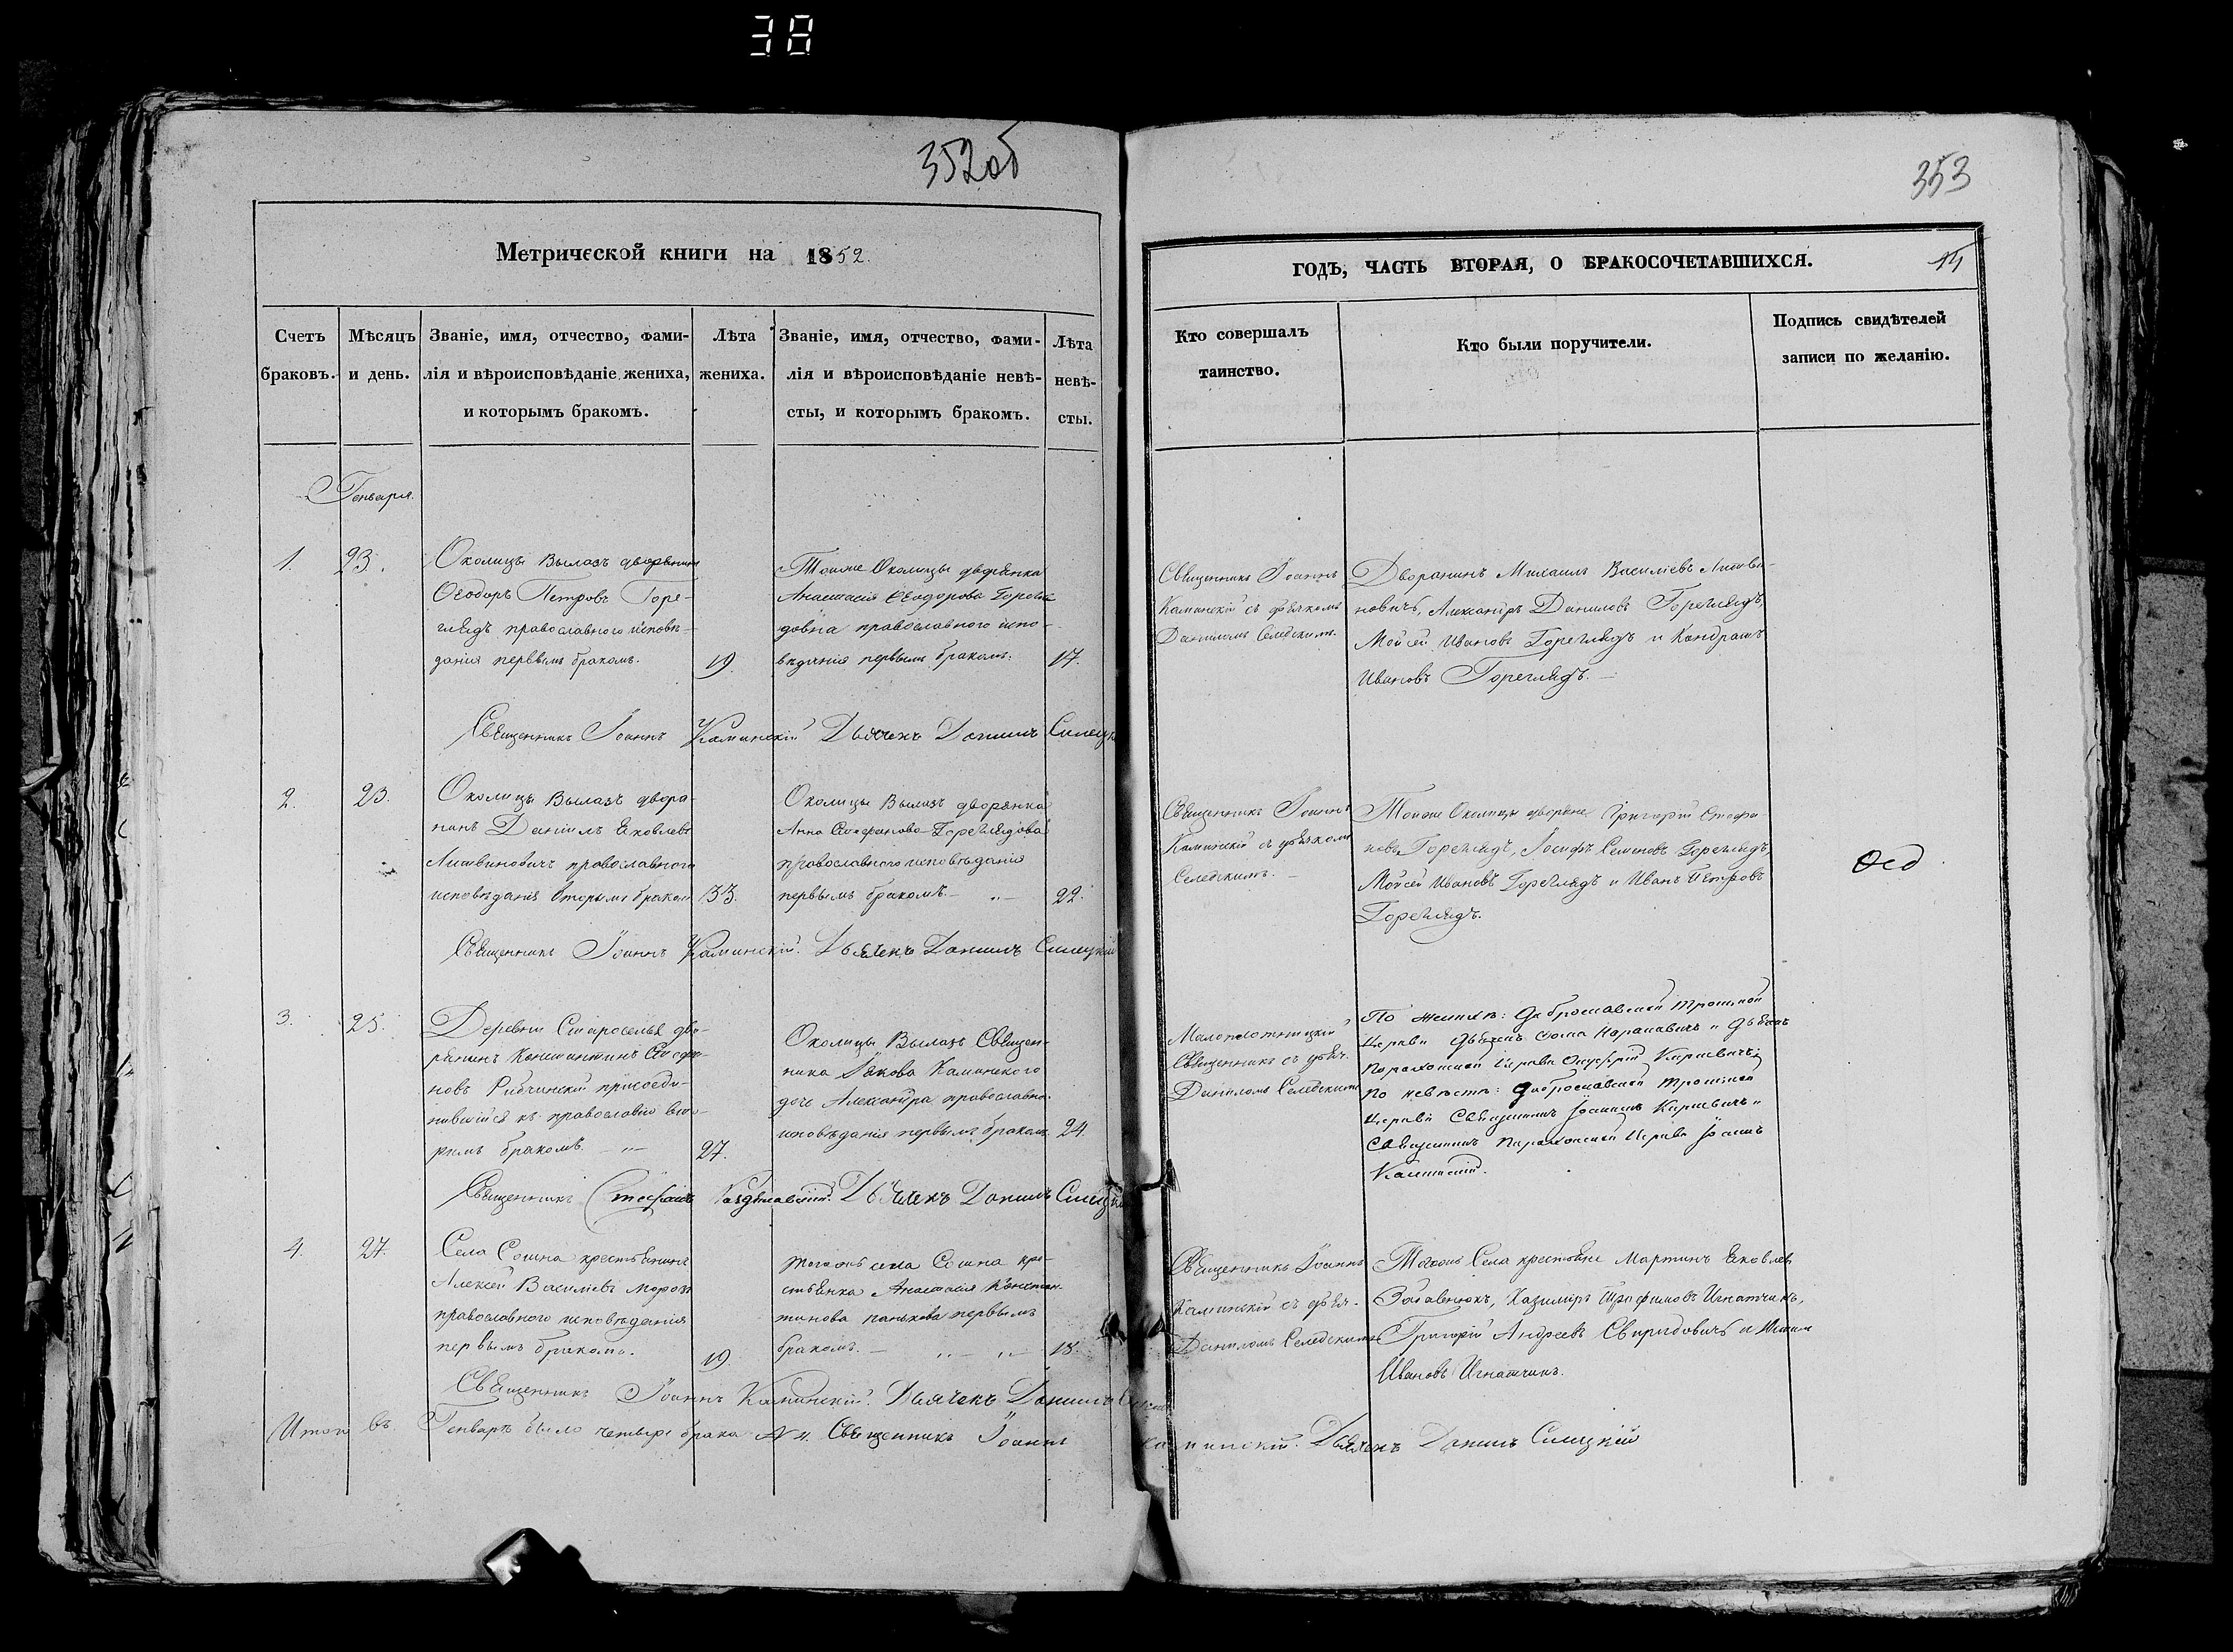 38
352об
353
Метрической книги на 1852.
Счетъ браковъ.
Мѣсяцъ и день.
Званіе, имя, отчество, фами-
лія и вѣроисповѣданіе жениха,
и которымъ бракомъ.
Лѣта жениха.
Званіе, имя, отчество, фами-
лія и вѣроисповѣданіе невѣ-
сты, и которымъ бракомъ.
Лѣта невѣ-
сты.
Генваря.
1. 23.
Околицы Вылазъ дворянинъ
Ѳеодоръ Петровъ Горе-
глядъ православнаго исповѣ-
данія первымъ бракомъ.
19.
Тойже Околицы дворянка
Анастасія Ѳеодорова
православнаго испо-
вѣданія первымъ бракомъ.
17.
Священникъ Іоаннъ Каминскій Дьячекъ Даниилъ
2. 23.
Околицы Вылазъ дворя-
нинъ Даніилъ Яковлевъ
Литвиновичъ православнаго
исповѣданія вторымъ бракомъ
33.
Околицы Вылазъ дворянка
Анна Стефанова Гореглядова
православнаго исповѣданія
первымъ бракомъ. — „ —
22.
Священникъ Іоаннъ Каминскій. Дьячекъ Даниилъ Силецкій
3. 25.
Деревни Староселья дво-
рянинъ Константинъ Стефа-
новъ присоеди-
нившійся къ православію вто-
рымъ бракомъ. — „ —
27.
Околицы Вылазъ Священ-
ника Іакова Каминскаго
дочь Александра православна.
исповѣданія первымъ бракомъ.
24.
Священникъ Стефанъ Дьячекъ Даниилъ
4. 27.
Села Сошна крестьянинъ
Алексей Василіевъ Морозъ
православнаго исповѣданія
первымъ бракомъ.
19.
тогожъ села Сошна кре-
стьянка Анастасія Констан-
тинова первымъ
бракомъ. — „ — „ —
18.
Священникъ Іоаннъ Каминскій. Дьячекъ Даниилъ
Итого въ Генварѣ было четыре брака № 4. Священникъ Іоаннъ Каминскій. Дьячекъ Даниилъ Силецкій
ГОДЪ, ЧАСТЬ ВТОРАЯ, О БРАКОСОЧЕТАВШИХСЯ.
Кто совершалъ
таинство.
Кто были поручители.
Подпись свидѣтелей
записи по желанію.
Священникъ Іоаннъ
Каминскій съ дьячкомъ
Данииломъ Селецкимъ.
Дворянинъ Михаилъ Василіевъ Литви-
новичъ, Александръ Даниловъ Гореглядъ,
Мойсей Ивановъ Гореглядъ и Кондратъ
Ивановъ Гореглядъ. —
Священникъ Іоаннъ
Каминскій съ дьячкомъ
Селецкимъ. —
Тойже Околицы дворяне Григорій Стефа-
новъ Гореглядъ, Іосифъ Семеновъ Гореглядъ,
Мойсей Ивановъ Гореглядъ и Иванъ Петровъ
Гореглядъ.
Священникъ съ дьяч.
Даниломъ Селецкимъ
По женихѣ: Доброславской Троицкой
Церкви дьячекъ Ѳома и дьячекъ
Парахонской Церкви Онуфрій
По невѣстѣ: Доброславской Троицкой
Церкви Священникъ Іоаннъ и
Священникъ Парахонской Церкви Іоаннъ
Каминскій.
Священникъ Іоаннъ
Каминскій съ дьяч.
Даниломъ Селецкимъ
Тогожъ Села крестьяне Мартинъ Яковлевъ
Казимиръ Трофимовъ Игнатчикъ,
Григорій Андреевъ Свиридовичъ и
Ивановъ Игнатчикъ.